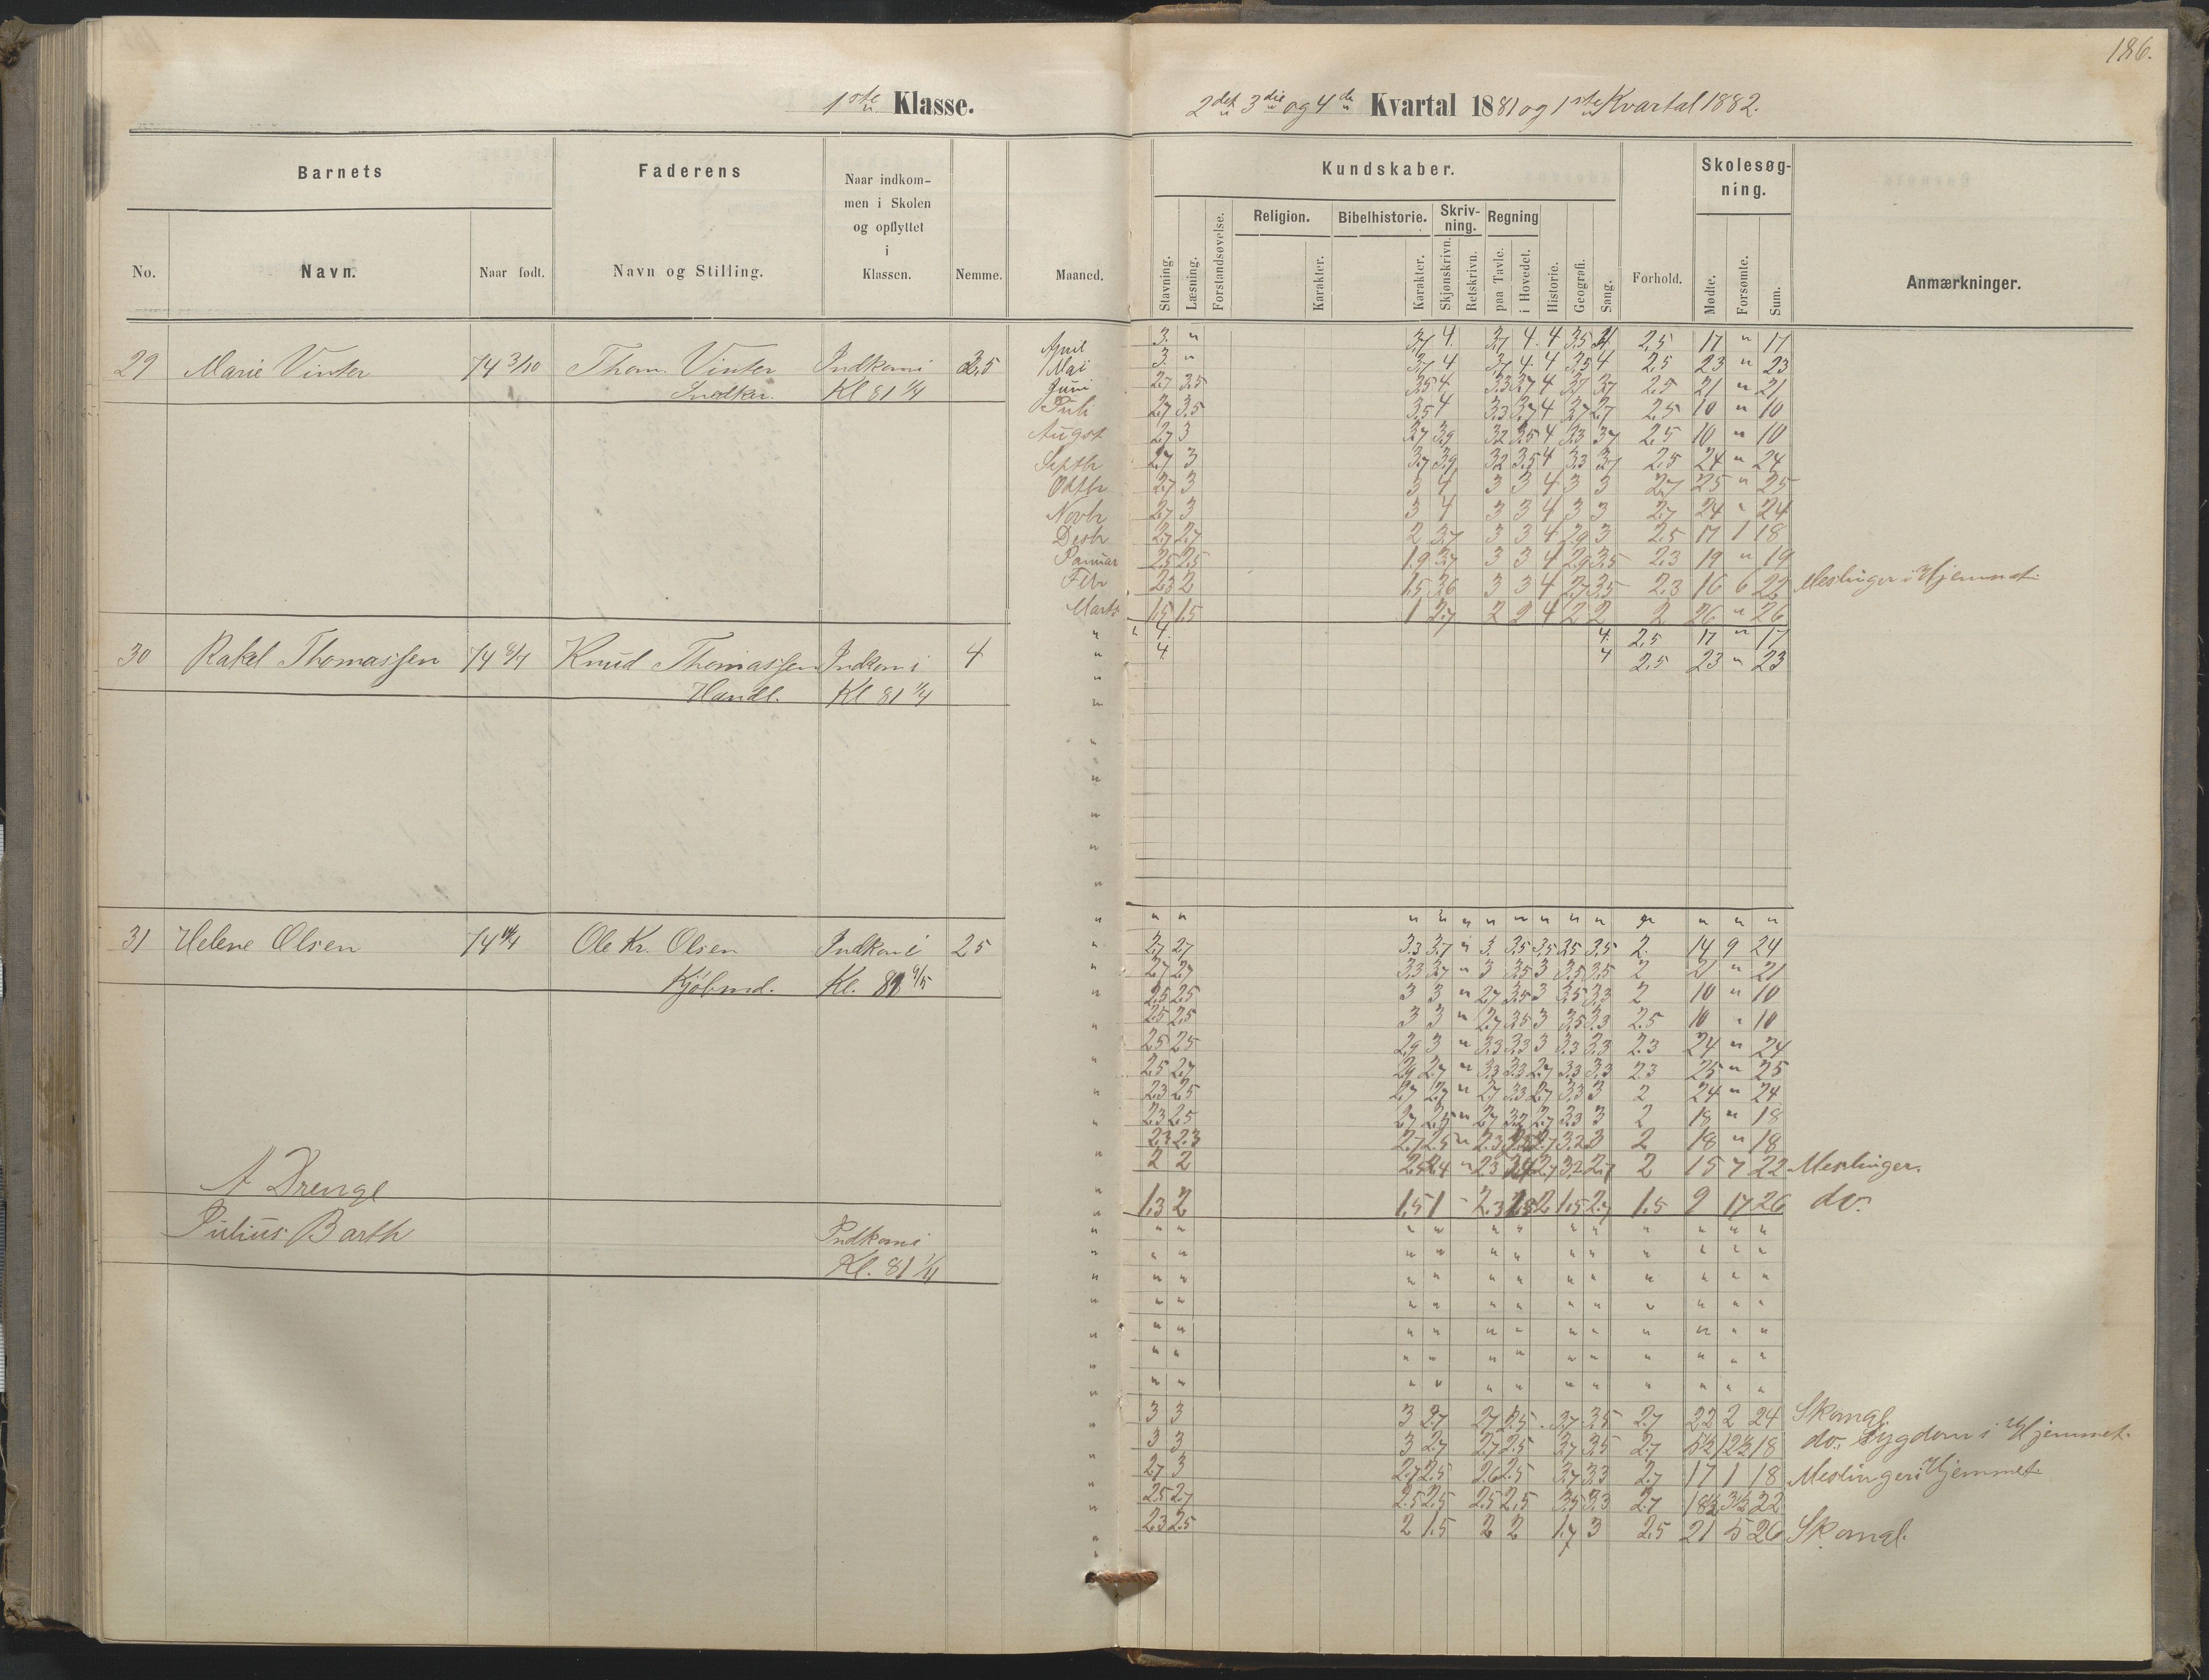 186.
1ste Klasse.
2det 3die og 4de Kvartal 1881 og 1ste Kvartal 1882.
Barnets
Faderens
Naar indkom-
men i Skolen
og opflyttet
i
Klassen.
Nemme.
Maaned.
No.
Navn.
Naar født.
Navn og Stilling.
Kundskaber.
Skolesøg-
ning.
Religion.
Bibelhistorie.
Skriv-
ning.
Regning
Stavning.
Læsning.
Forstandsøvelse.
Karakter.
Karakter.
Skjønskrivn.
Retskrivn.
paa Tavle.
i Hovedet.
Historie.
Geografi.
Sang.
Forhold.
Mødte.
Forsømte.
Sum.
Anmærkninger.
29 Marie Vinter 74 3/10 Thom. Vinter Indkom i 2,5
Snedker. Kl 81 1/4
April 3. " 3,7 4. 3,7 4. 4 3,5 4. 2,5 17 " 17
Mai 3. " 3,7 4 3,7 4. 4 3,5 4 2,5 23 " 23
Juni 2,7 3,5 3,5 4 3,3 3,7 4 3,7 3,7 2,5 21 " 21
Juli 2,7 3,5 3,5 4 3,3 3,7 4 3,7 2,7 2,5 10 " 10
Augst 2,7 3 3,7 3,9 3,2 3,5 4 3,3 3,7 2,5 10 " 10
Septbr 2,7 3 3,7 3,9 3,2 3,5 4 3,3 3,7 2,5 24 " 24
Octbr 2,7 3 3 4 3 3 4 3 3 2,7 25 " 25
Novbr 2,7 3 3 4 3 3 4 3 3 2,7 24 " 24
Desbr 2,7 2,7 2 3,7 3 3 4 2,9 3 2,5 17 1 18
Januar 2,5 2,5 1,9 3,7 3 3 4 2,9 3,5 2,3 19 " 19
Febr 2,3 2 1,5 3,6 3 3 4 2,7 3,5 2,3 16 6 22 Meslinger i Hjemmet
Marts 1,5 1,5 1 2,7 2 2 4 2 2 2 26 " 26
30 Rakel Thomassen 74 8/4 Knud Thomassen Indkom i 4
Handl. Kl 81 1/4
" 4. 4. 2,5 17 " 17
" 4. 4 2,5 23 " 23
31 Helene Olsen Ole Kr. Olsen Indkom i 2,5
Kjøbmd. Kl. 81 9/5
" " " " " " " " " " " " " "
2,7 2,7 3,3 3,7 " 3. 3,5 3,5 3,5 3,5 2. 14 9 24
2,7 2,7 3,3 3,7 " 3 3,5 3 3,5 3,5 2 21 " 21
2,5 2,5 3 3 " 2,7 3,5 3 3,5 3,3 2 10 " 10
2,5 2,5 3 3 " 2,7 3,5 3 3,5 3,3 2,5 10 " 10
2,5 2,5 2,9 3 " 3,3 3,3 3 3,3 3,3 2,3 24 " 24
2,5 2,7 2,9 2,7 " 3,3 3,3 2,7 3,3 3,3 2,3 25 " 25
2,3 2,5 2,7 2,7 " 2,7 3,3 2,7 3,3 3 2 24 " 24
2,3 2,5 2,7 2,5 " 2,7 3,2 2,7 3,3 3 2 18 " 18
2,3 2,3 2,7 2,5 " 2,3 2,7 3,2 3 2 18 " 18
2 2 2,5 2,4 " 2,3 2,4 2,7 3,2 2,7 2 15 7 22 Meslinger.
1,3 2 1,5 1 - 2,3 2 1,5 2,7 1,5 9 17 26 do.
A Drenge
Julius Barth Indkom i
Kl. 81 1/11
3 3 3 2,7 2,7 2,5 3,7 3,5 2,7 22 2 24 Skomgl.
3 3 3 2,7 2,7 2,5 3,7 3,5 2,7 5½ 12½ 18 do. Sygdom i Hjemmet.
2,7 3 2,7 2,5 2,6 2,5 3,7 3,3 2,7 17 1 18 Meslinger i Hjemmet
2,5 2,7 2,5 2,5 2,5 2,5 3,5 3,3 2,7 18½ 3½ 22
2,3 2,5 2 1,5 2 2 1,7 3 2,5 21 5 26 Skomgl.